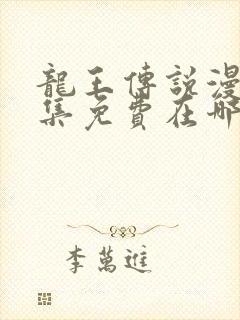 龍王傳說漫
集免費在哪
李萬進